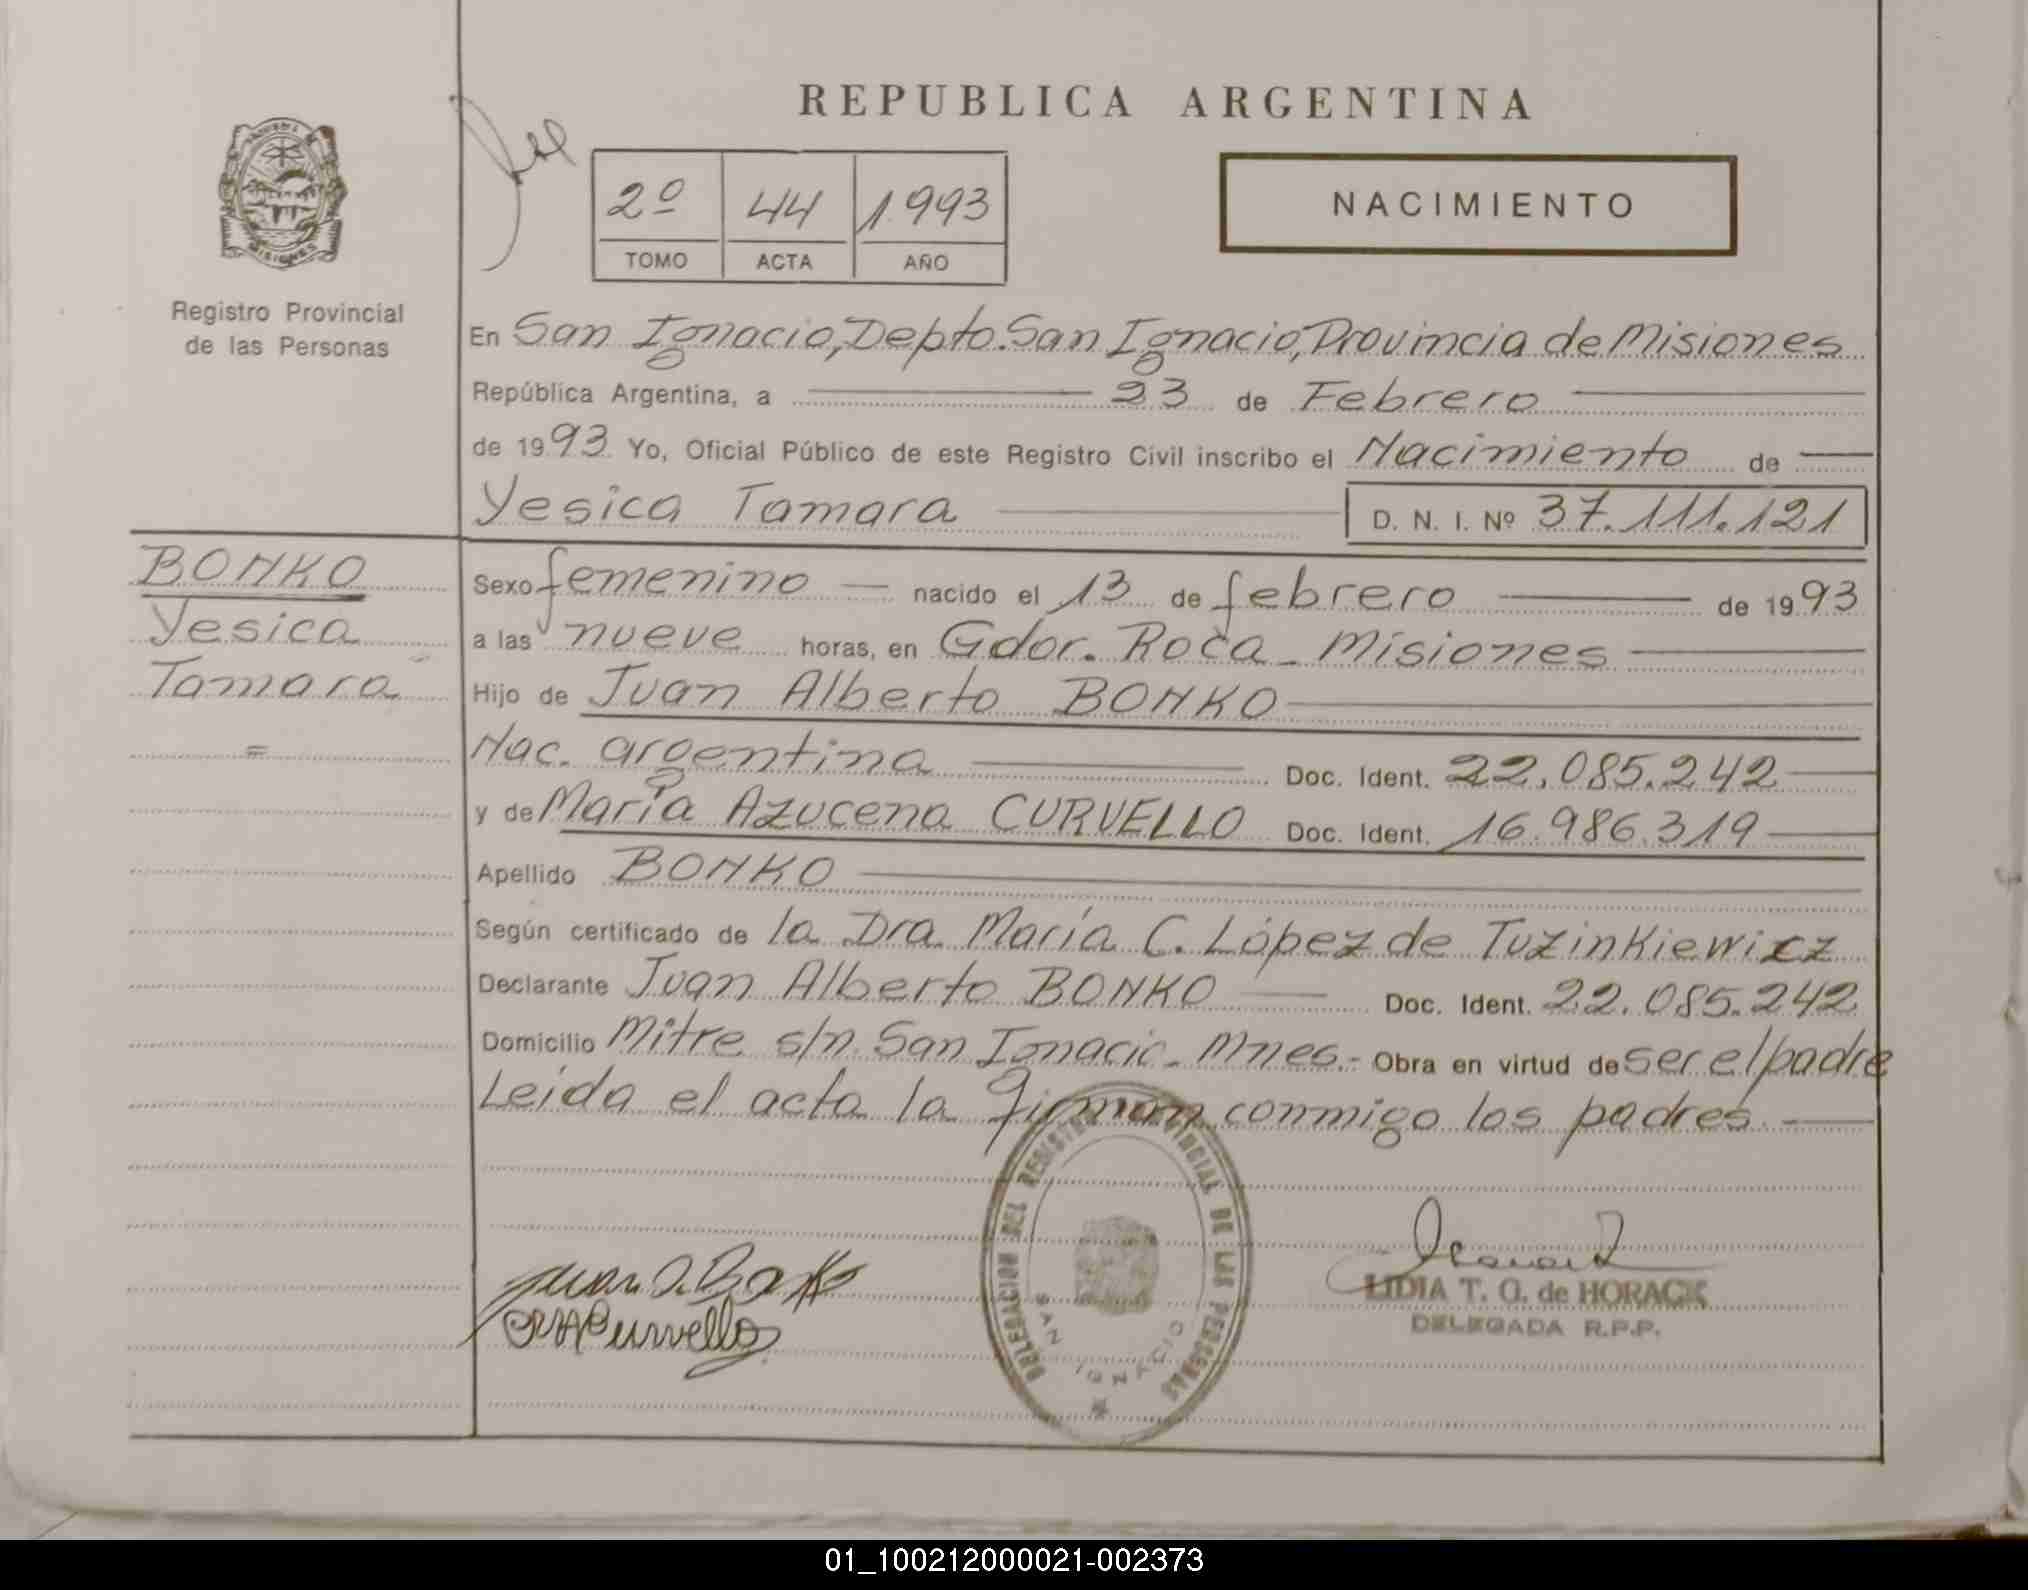 REPUBLICA ARGENTINA
2º 44 1.993
TOMO ACTA AÑO
NACIMIENTO
MISIONES
Registro Provincial
de las Personas
En San Ignacio, Depto. San Ignacio, Provincia de Misiones
República Argentina, a 23 de Febrero
de 1993 Yo, Oficial Público de este Registro Civil inscribo el Nacimiento de
Yesica Tamara D. N. I. Nº 37.111.121
BONKO
Yesica
Tamara
=
Sexo femenino nacido el 13 de febrero de 1993
a las nueve horas, en Gdor. Roca - Misiones
Hijo de Juan Alberto BONKO
Nac. argentina Doc. Ident. 22.085.242
y de María Azucena CURVELLO Doc. Ident. 16.986.319
Apellido BONKO
Según certificado de la Dra. María C. López de Tuzinkiewicz
Declarante Juan Alberto BONKO Doc. Ident. 22.085.242
Domicilio Mitre s/n. San Ignacio - Mnes.- Obra en virtud de ser el padre
Leída el acta la firman conmigo los padres.
DELEGACION DEL REGISTRO PROVINCIAL DE LAS PERSONAS
SAN IGNACIO
Juan A. Bonko
MACurvello
LIDIA T. O. de HORACK
DELEGADA R.P.P.
01_100212000021-002373